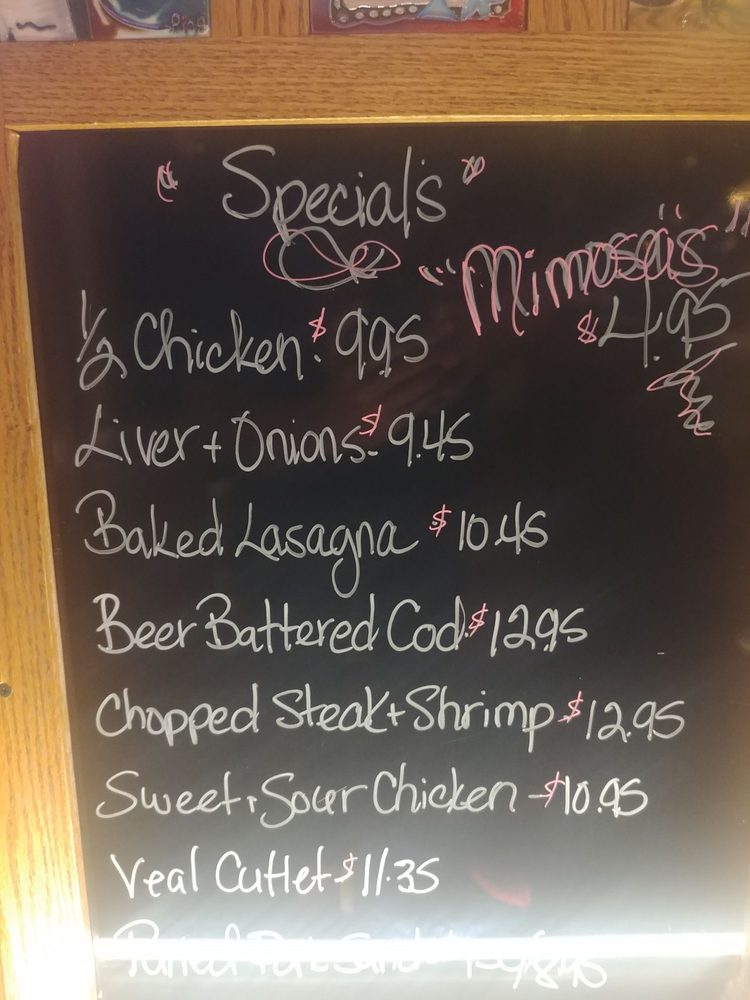 " Special's "
"Mimosa's"
$4.95
1/2 Chicken. $9.95
Liver + Onions. $9.45
Baked Lasagna $10.45
Beer Battered Cod $12.95
Chopped Steak + Shrimp $12.95
Sweet + Sour Chicken - $10.95
Veal Cutlet $11.35
Pulled Pork Sand